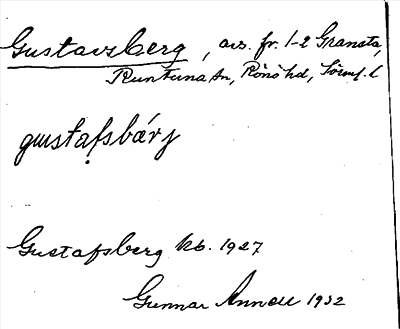 Gustavsberg, avs. fr. 1-2 Gransta,
Runtuna sn, Rönö hd, Sörml. l
gustafsbárj
Gustafsberg kb. 1927
Gunnar 1932